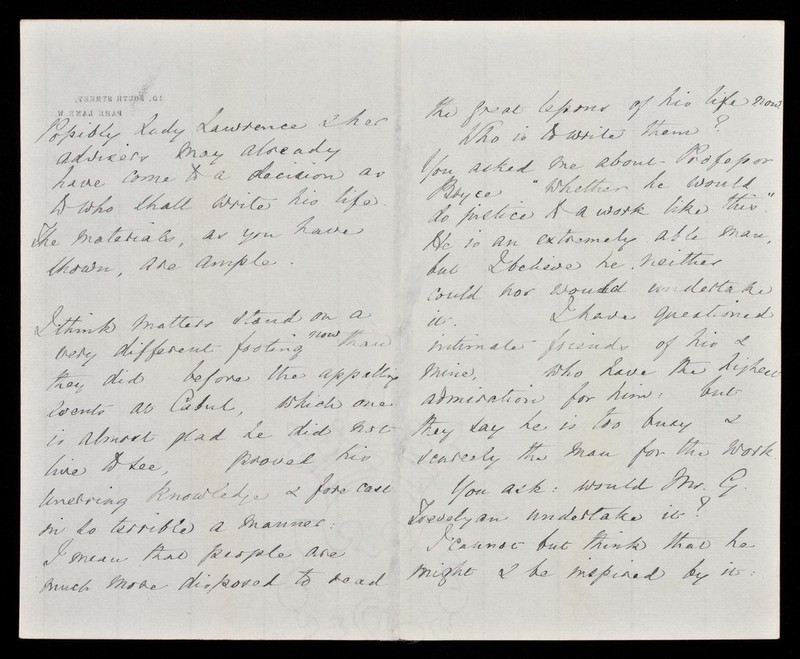 10, SOUTH STREET,
PARK LANE. W
Possibly Lady Lawrence & her
advisers may already
have come to a decision as
to who shall write his life.
The materials, as you have
shown, are ample.
I think matters stand on a
very different footing now than
they did before the appalling
events at Cabul, which one
is almost glad he did not
live to see, proved his
unerring knowledge & forecast
in so terrible a manner:
I mean that people are
much more disposed to read
the great lessons of his life now
Who is to write them?
You asked me about Professor
Bryce "whether he would
do justice to a work like this".
He is an extremely able man,
but I believe he neither
could nor would undertake
it. I have questioned
intimate friends of his &
mine, who have the highest
admiration for him: but
they say he is too busy &
scarcely the man for the work.
You ask: would Mr. G.
Trevelyan undertake it?
I cannot but think that he
might & be inspired by it: